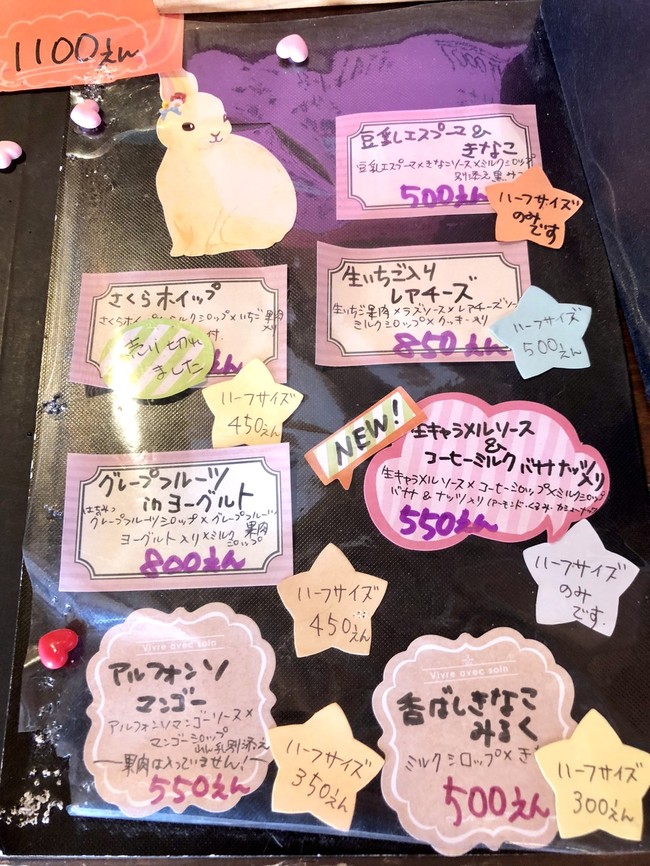 1100えん
豆乳エスプーマ&
きなこ
豆乳エスプーマ×きなこソース×ミルクシロップ
別添え黒
500えん
ハーフサイズ
のみ
です
さくらホイップ
ミルクシロップ×いちご果肉
入り
売り切れ
ました
えん
ハーフサイズ
450えん
生いちご入り
レアチーズ
生いちご果肉×ラズソース×レアチーズソー
ミルクシロップ×クッキー入り
850えん
ハーフサイズ
500えん
NEW!
生キャラメルソース
&
コーヒーミルクバナナナッツ
入り
生キャラメルソース×コーヒーシロップ×ミルクシロップ
バナナ&ナッツ入り(アーモンド・くるみ・カシューナッツ
550えん
ハーフサイズ
のみ
です。
グレープフルーツ
inヨーグルト
はちみつ
グレープフルーツシロップ×グレープフルーツ
果肉
ヨーグルト入り×ミルクシロップ
800えん
ハーフサイズ
450えん
Vivre avec soin
アルフォンソ
マンゴー
アルフォンソマンゴーソース×
マンゴーシロップ
練乳別添え
ー果肉は入っていません!ー
550えん
ハーフサイズ
350えん
Vivre avec soin
香ばしきなこ
みるく
ミルクシロップ×き
500えん
ハーフサイズ
300えん